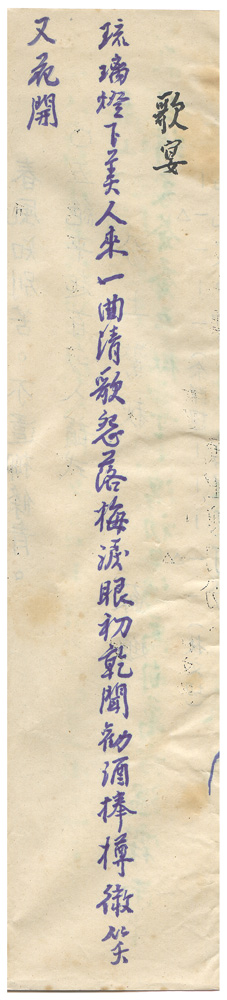 歌宴
琉璃燈下美人來一曲清歌怨落梅淚眼初乾聞勸酒捧樽微笑
又花開